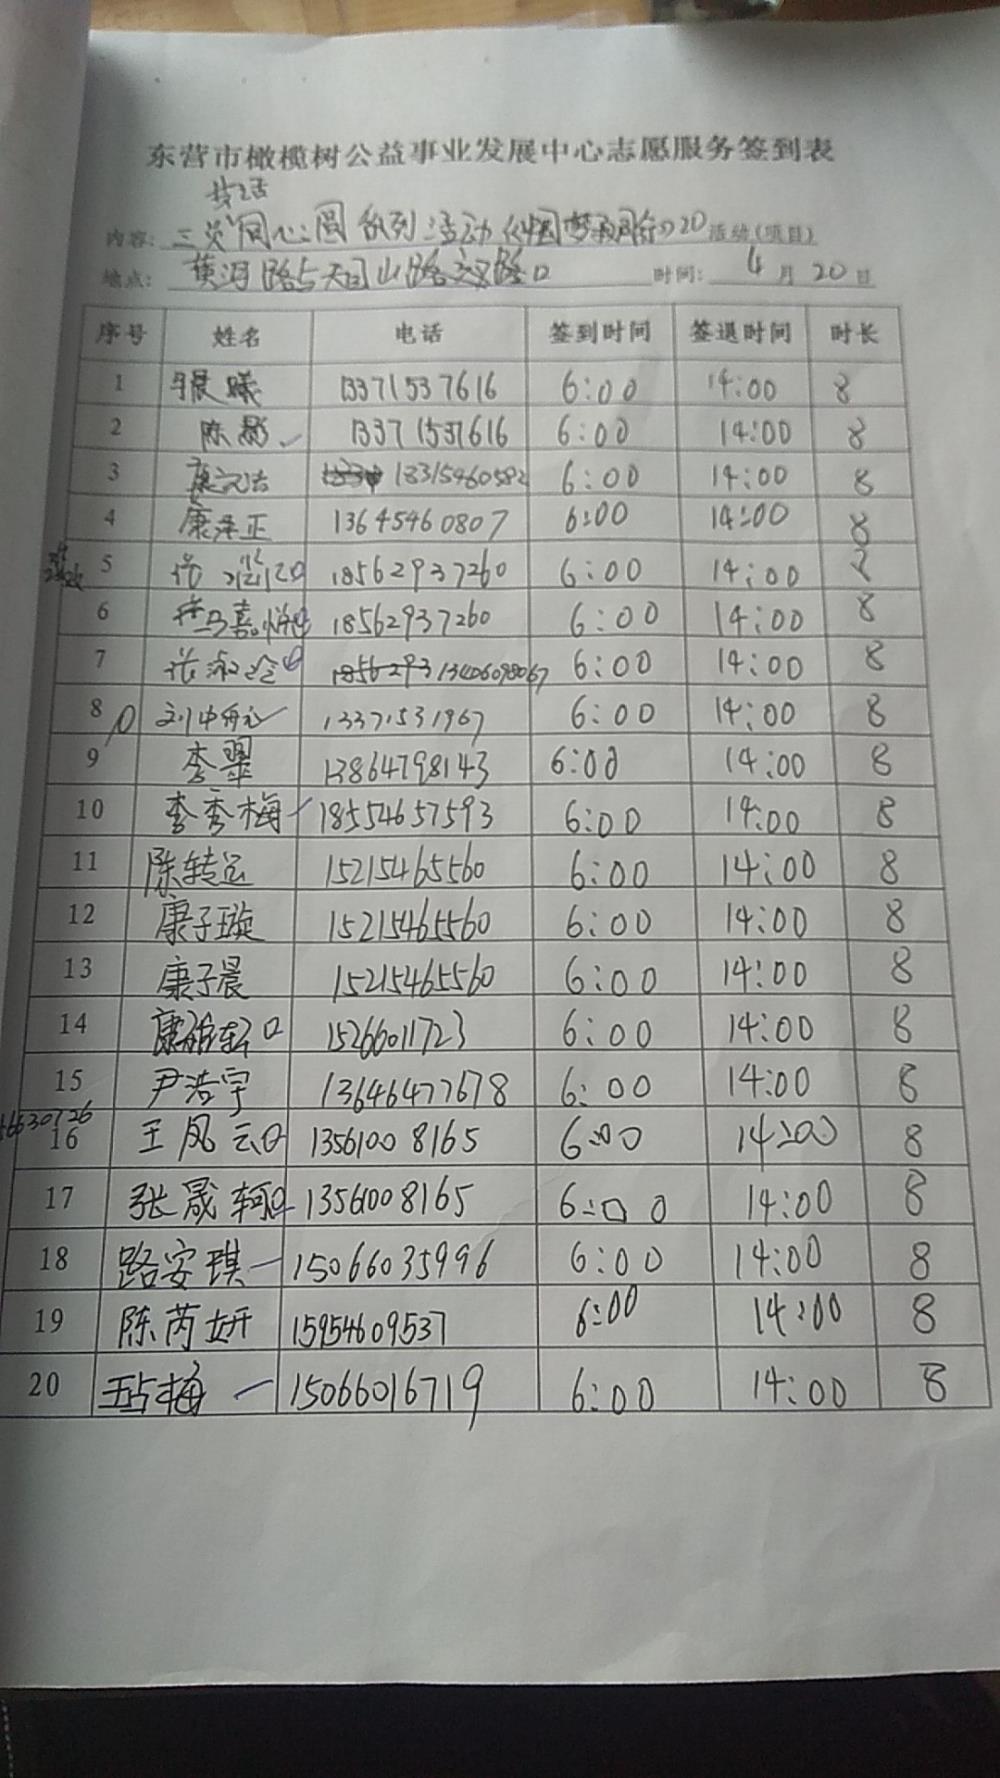 东营市橄榄树公益事业发展中心志愿服务签到表
内容: 同心圆系列活动 20 活动(项目)
地点: 黄河路与天目山路交叉路口 时间: 4月20日
序号 姓名 电话 签到时间 签退时间 时长
1 13371537616 6:00 14:00 8
2 陈影 13371537616 6:00 14:00 8
3 18315460582 6:00 14:00 8
4 康泽正 13645460807 6:00 14:00 8
5 18562937260 6:00 14:00 8
6 嘉悦 18562937260 6:00 14:00 8
7 张淑 13406098067 6:00 14:00 8
8 13371531967 6:00 14:00 8
9 李翠 13864798143 6:00 14:00 8
10 李秀梅 18554657593 6:00 14:00 8
11 陈转运 15215465560 6:00 14:00 8
12 康子璇 15215465560 6:00 14:00 8
13 康子晨 15215465560 6:00 14:00 8
14 15266011723 6:00 14:00 8
15 尹浩宇 13646477678 6:00 14:00 8
16 王凤云 13561008165 6:00 14:00 8
17 张晟轲 13561008165 6:00 14:00 8
18 路安琪 15066035996 6:00 14:00 8
19 陈芮妍 15954609537 6:00 14:00 8
20 15066016719 6:00 14:00 8